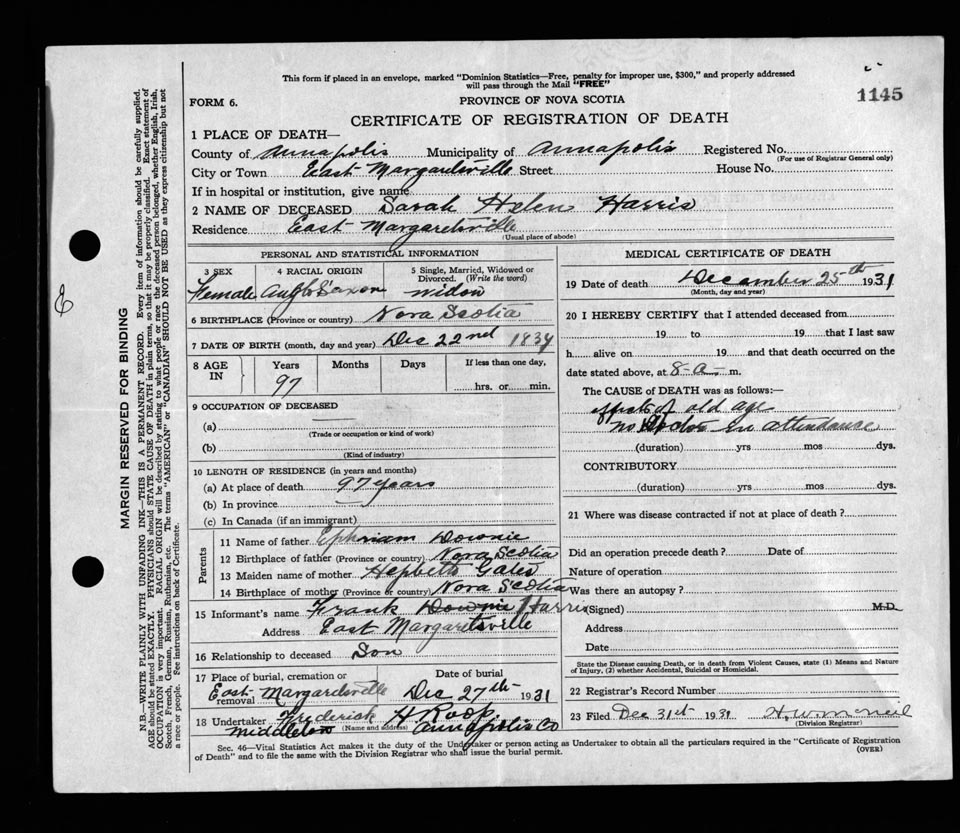 This form if placed in an envelope, marked "Dominion Statistics—Free, penalty for improper use, $300," and properly addressed
will pass through the Mail "FREE"
1145
FORM 6.
PROVINCE OF NOVA SCOTIA
CERTIFICATE OF REGISTRATION OF DEATH
1 PLACE OF DEATH—
County of Annapolis Municipality of Annapolis Registered No.
(For use of Registrar General only)
City or Town East Margaretsville Street House No.
If in hospital or institution, give name
2 NAME OF DECEASED Sarah Helen Harris
Residence East Margaretsville
(Usual place of abode)
PERSONAL AND STATISTICAL INFORMATION
3 SEX 4 RACIAL ORIGIN 5 Single, Married, Widowed or
Divorced. (Write the word)
Female Anglo Saxon widow
6 BIRTHPLACE (Province or country) Nova Scotia
7 DATE OF BIRTH (month, day and year) Dec 22nd 1834
8 AGE IN Years Months Days If less than one day,
97 hrs. or min.
9 OCCUPATION OF DECEASED
(a)
(Trade or occupation or kind of work)
(b)
(Kind of industry)
10 LENGTH OF RESIDENCE (in years and months)
(a) At place of death 97 years
(b) In province
(c) In Canada (if an immigrant)
Parents
11 Name of father Ephriam Downie
12 Birthplace of father (Province or country) Nova Scotia
13 Maiden name of mother Gates
14 Birthplace of mother (Province or country) Nova Scotia
15 Informant's name Frank Downie Harris
Address East Margaretsville
16 Relationship to deceased Son
17 Place of burial, cremation or removal Date of burial
East Margaretsville Dec 27th 1931
18 Undertaker Frederick H Roop
Middleton (Name and address) Annapolis Co
MEDICAL CERTIFICATE OF DEATH
19 Date of death December 25th 1931
(Month, day and year)
20 I HEREBY CERTIFY that I attended deceased from
19 to 19 that I last saw
h alive on 19 and that death occurred on the
date stated above, at 8-a- m.
The CAUSE of DEATH was as follows:—
effects of old age
no Doctor in attendance
(duration) yrs mos dys.
CONTRIBUTORY
(duration) yrs mos dys.
21 Where was disease contracted if not at place of death?
Did an operation precede death? Date of
Nature of operation
Was there an autopsy?
(Signed) M.D.
Address
Date
State the Disease causing Death, or in death from Violent Causes, state (1) Means and Nature
of Injury, (2) whether Accidental, Suicidal or Homicidal.
22 Registrar's Record Number
23 Filed Dec 31st 1931 H W McNeil
(Division Registrar)
Sec. 46—Vital Statistics Act makes it the duty of the Undertaker or person acting as Undertaker to obtain all the particulars required in the "Certificate of Registration
of Death" and to file the same with the Division Registrar who shall issue the burial permit.
(OVER)
MARGIN RESERVED FOR BINDING
N.B.—WRITE PLAINLY WITH UNFADING INK—THIS IS A PERMANENT RECORD. Every item of information should be carefully supplied.
AGE should be stated EXACTLY. PHYSICIANS should STATE CAUSE OF DEATH in plain terms, so that it may be properly classified. Exact statement of
OCCUPATION is very important. RACIAL ORIGIN will be described by stating to what people or race the deceased person belonged, whether English, Irish,
Scotch, French, German, Russian, Ruthenian, etc. The terms "AMERICAN" or "CANADIAN" SHOULD NOT BE USED as they express citizenship but not
a race or people. See instructions on back of Certificate.